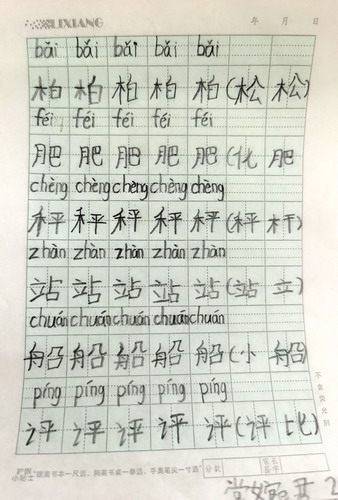 LIXIANG
年 月 日
bǎi bǎi bǎi bǎi bǎi
柏 柏 柏 柏 柏 (松 松)
féi féi féi féi féi
肥 肥 肥 肥 肥 (化 肥
chèng chèng chèng chèng chèng
秤 秤 秤 秤 秤 (秤 杆)
zhàn zhàn zhàn zhàn zhàn
站 站 站 站 站 (站 立)
chuán chuán chuán chuán chuán
船 船 船 船 船 (小 船)
píng píng píng píng píng
评 评 评 评 评 (评 比)
小贴士 "眼离书本一尺远,胸离书桌一拳远,手离笔尖一寸远" 分数 家长签字